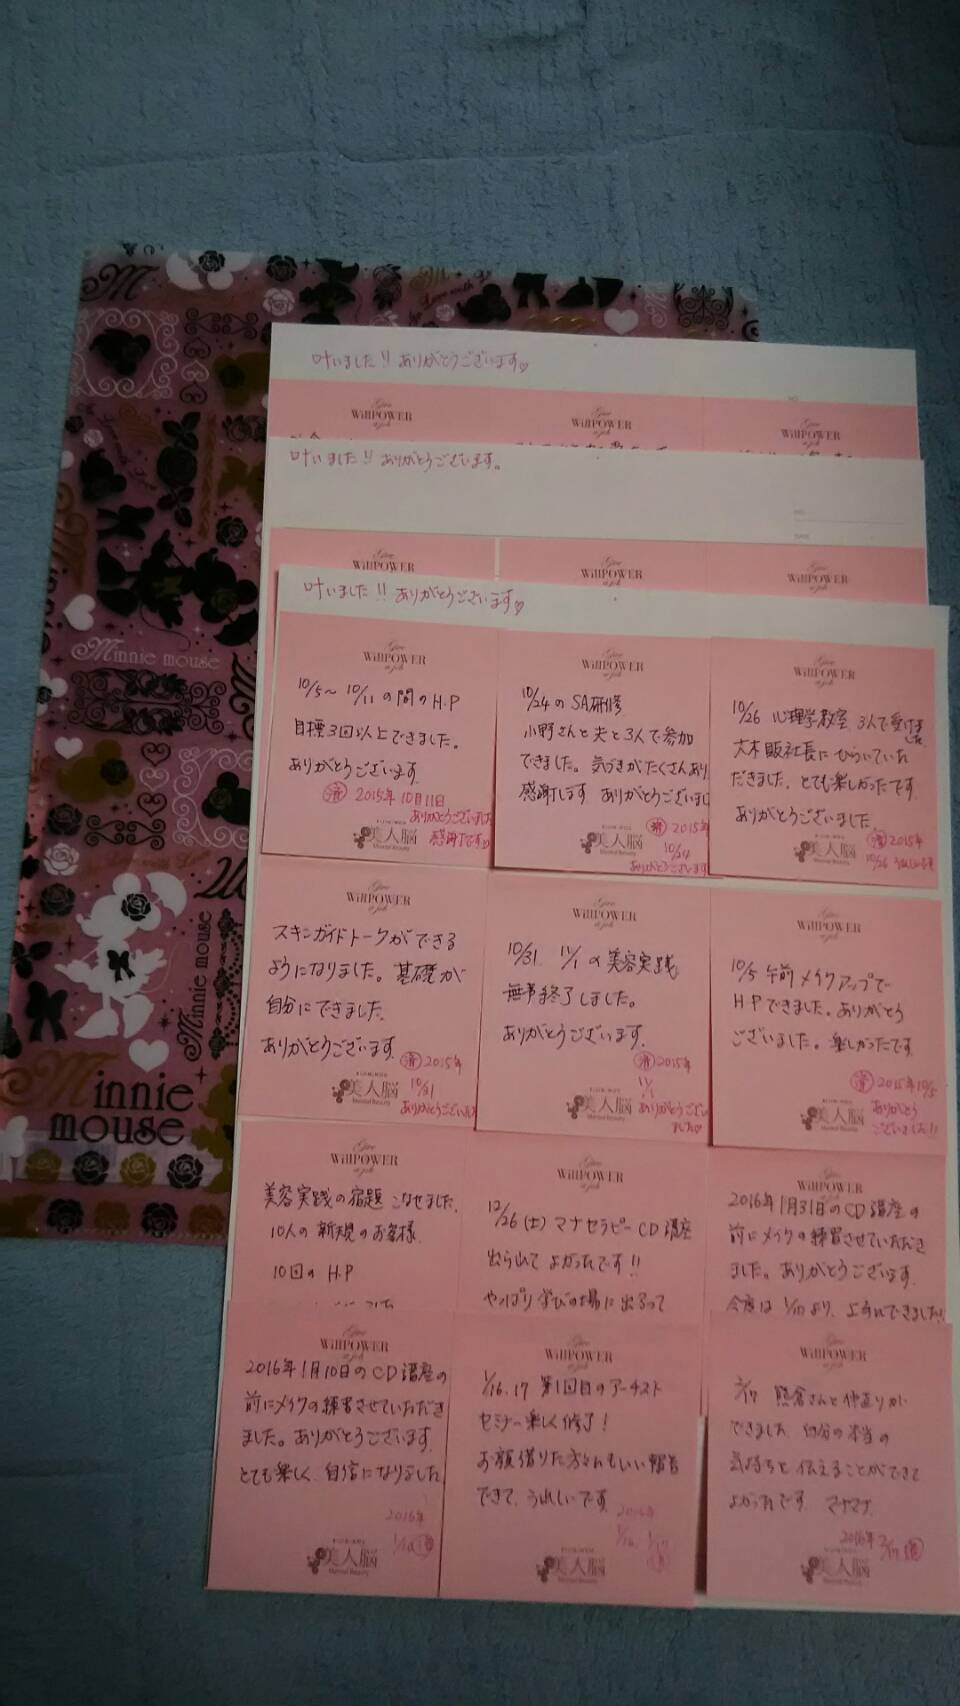 叶いました!! ありがとうございます♡
Give
WillPOWER
a job
Give
WillPOWER
a job
Give
WillPOWER
a job
叶いました!! ありがとうございます。
Give
WillPOWER
a job
Give
WillPOWER
a job
Give
WillPOWER
a job
叶いました!! ありがとうございます♡
Give
WillPOWER
a job
10/5〜10/11の間のH.P
目標3回以上できました。
ありがとうございます
済 2015年10月11日
ありがとうございました
感謝です♡
美人脳
Mental Beauty
Give
WillPOWER
a job
10/24のSA研修
小野さんと夫と3人で参加
できました。気づきがたくさんあり
感謝します ありがとうございまし
済 2015年
10/24
ありがとうございます
美人脳
Mental Beauty
Give
WillPOWER
a job
10/26 心理学教室 3人で受けま
した
大木 社長にひらいていた
だきました。とても楽しかったです
ありがとうございました
済 2015年
10/26
美人脳
Mental Beauty
Give
WillPOWER
a job
スキンガイドトークができる
ようになりました。基礎が
自分にできました。
ありがとうございます
済 2015年
10/31
ありがとうございました
美人脳
Mental Beauty
Give
WillPOWER
a job
10/31 11/1の美容実践
無事終了しました。
ありがとうございます
済 2015年
11/1
ありがとうござい
ました♡
美人脳
Mental Beauty
Give
WillPOWER
a job
10/5 午前メイクアップで
HPできました。ありがとう
ございました。楽しかったです
済 2015年10/5
ありがとう
ございました!!
美人脳
Mental Beauty
Give
WillPOWER
a job
美容実践の宿題こなせました。
10人の新規のお客様
10回のH.P
Give
WillPOWER
a job
12/26(土)マナセラピーCD講座
出られてよかったです!!
やっぱり学びの場に出るって
WillPOWER
a job
2016年1月31日のCD講座の
前にメイクの練習させていただき
ました。ありがとうございます
今度は1/10より、上手にできました!
Give
WillPOWER
a job
2016年1月10日のCD講座の
前にメイクの練習させていただき
ました。ありがとうございます
とても楽しく自信になりました
2016年
1/10 済
美人脳
Mental Beauty
Give
WillPOWER
a job
1/16.17 第1回目のアーチスト
セミナー楽しく修了!
お顔借りた方々もいい報告
できて、うれしいです
2016年
1/16 1/17
済
美人脳
Mental Beauty
Give
WillPOWER
a job
2/17 熊倉さんと仲直りが
できました 自分の本当の
気持ちを伝えることができて
よかったです マナマナ
2016年2/17 済
美人脳
Mental Beauty
Minnie mouse
Minnie mouse
Minnie
mouse